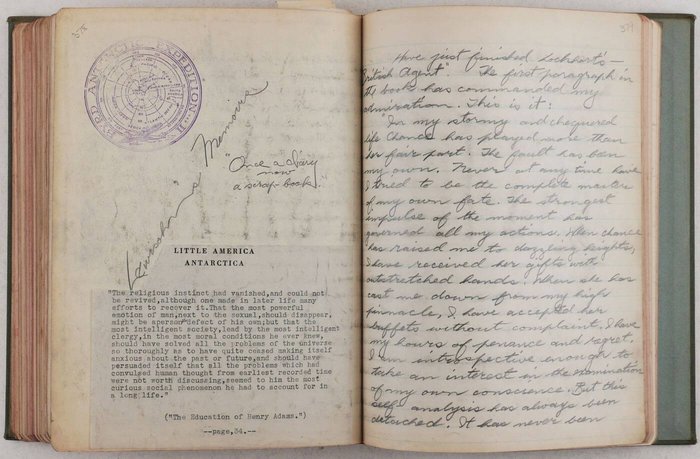 358
BYRD ANTARCTIC EXPEDITION II
Memoirs
"Once a diary
now
a scrap book."
LITTLE AMERICA
ANTARCTICA
"The religious instinct had vanished,and could not
be revived,although one made in later life many
efforts to recover it.That the most powerful
emotion of man,next to the sexual,should disappear,
might be a personal defect of his own;but that the
most intelligent society,lead by the most intelligent
clergy,in the most moral conditions he ever knew,
should have solved all the problems of the universe
so thoroughly as to have quite ceased making itself
anxious about the past or future,and should have
persuaded itself that all the problems which had
convulsed human thought from earliest recorded time
were not worth discussing,seemed to him the most
curious social phenomenon he had to account for in
a long life."
("The Education of Henry Adams.")
--page,34.--
Have just finished Lockhart's—
"British Agent". The first paragraph in
the book has commanded my
admiration. This is it:
"In my stormy and chequered
life Chance has played more than
her fair part. The fault has been
my own. Never at any time have
I tried to be the complete master
of my own fate. The strongest
impulse of the moment has
governed all my actions. When chance
has raised me to dazzling heights,
I have received her gifts with
outstretched hands. When she has
cast me down from my high
pinnacle, I have accepted her
buffets without complaint. I have
my hours of penance and regret.
I am introspective enough to
take an interest in the examination
of my own conscience. But this
self analysis has always been
detached. It has never been